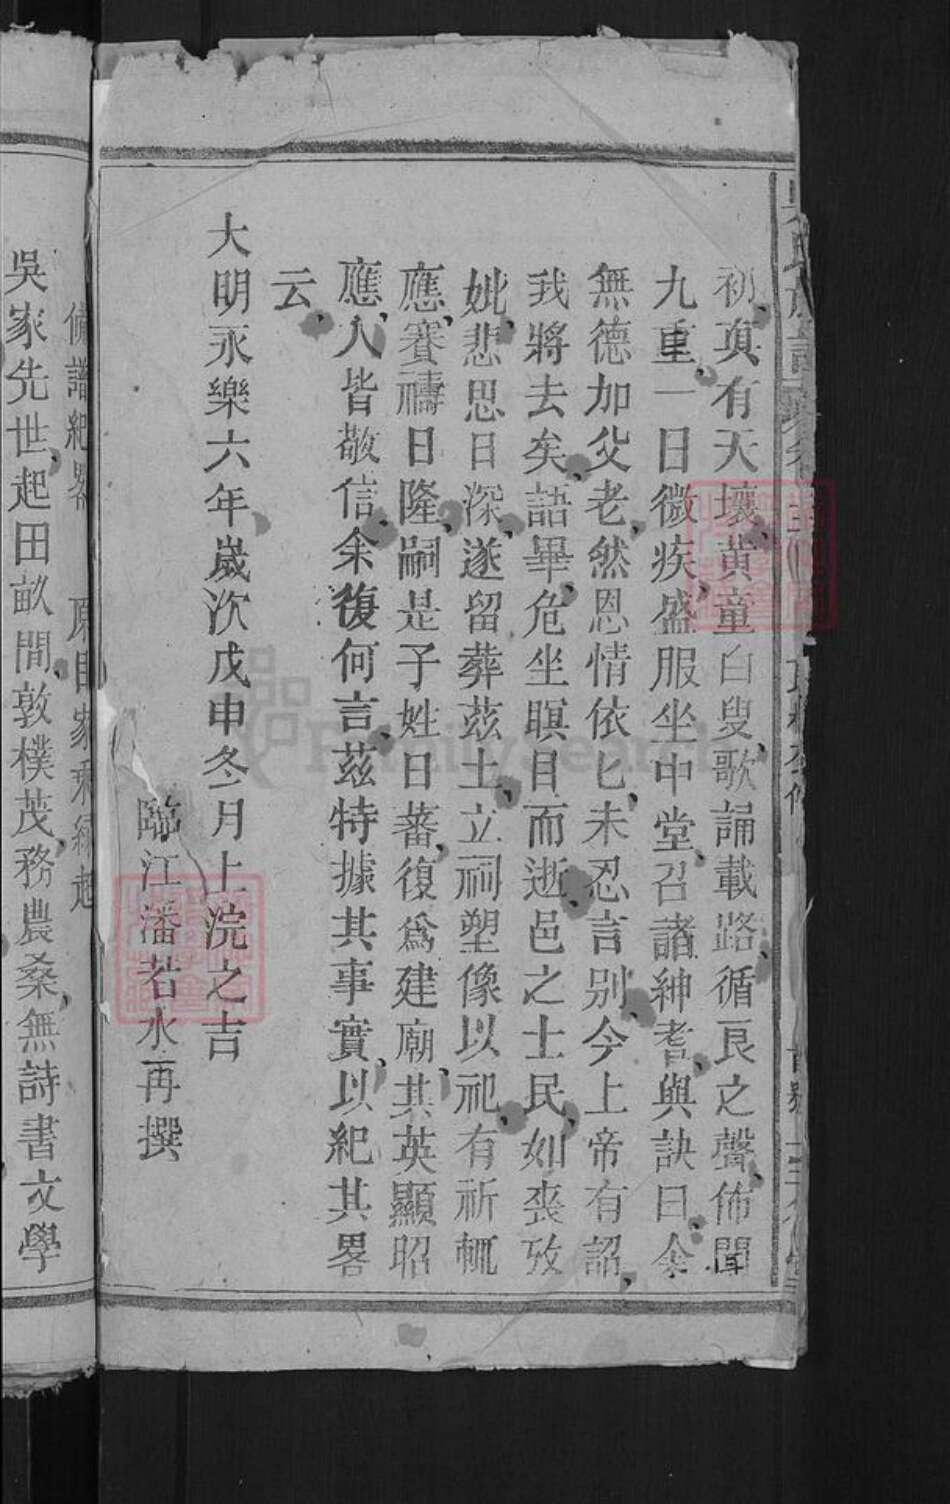 初真有天壤黃童白叟歌誦載路循良之聲佈聞
九重一日微疾盛服坐中堂召諸紳耆與訣曰余
無德加父老然恩情依匕未忍言别今上帝有詔
我將去矣語畢危坐瞑目而逝邑之士民如喪攷
妣悲思日深遂留葬茲土立祠塑像以祀有祈輒
應賽禱日隆嗣是子姓日蕃復爲建廟其英顯昭
應人皆敬信余復何言茲特據其事實以紀其畧
云
大明永樂六年歲次戊申冬月上浣之吉
臨江潘若水再撰
脩譜紀畧 原自家乘緣起
吳家先世起田畝間敦樸茂務農桑無詩書文學